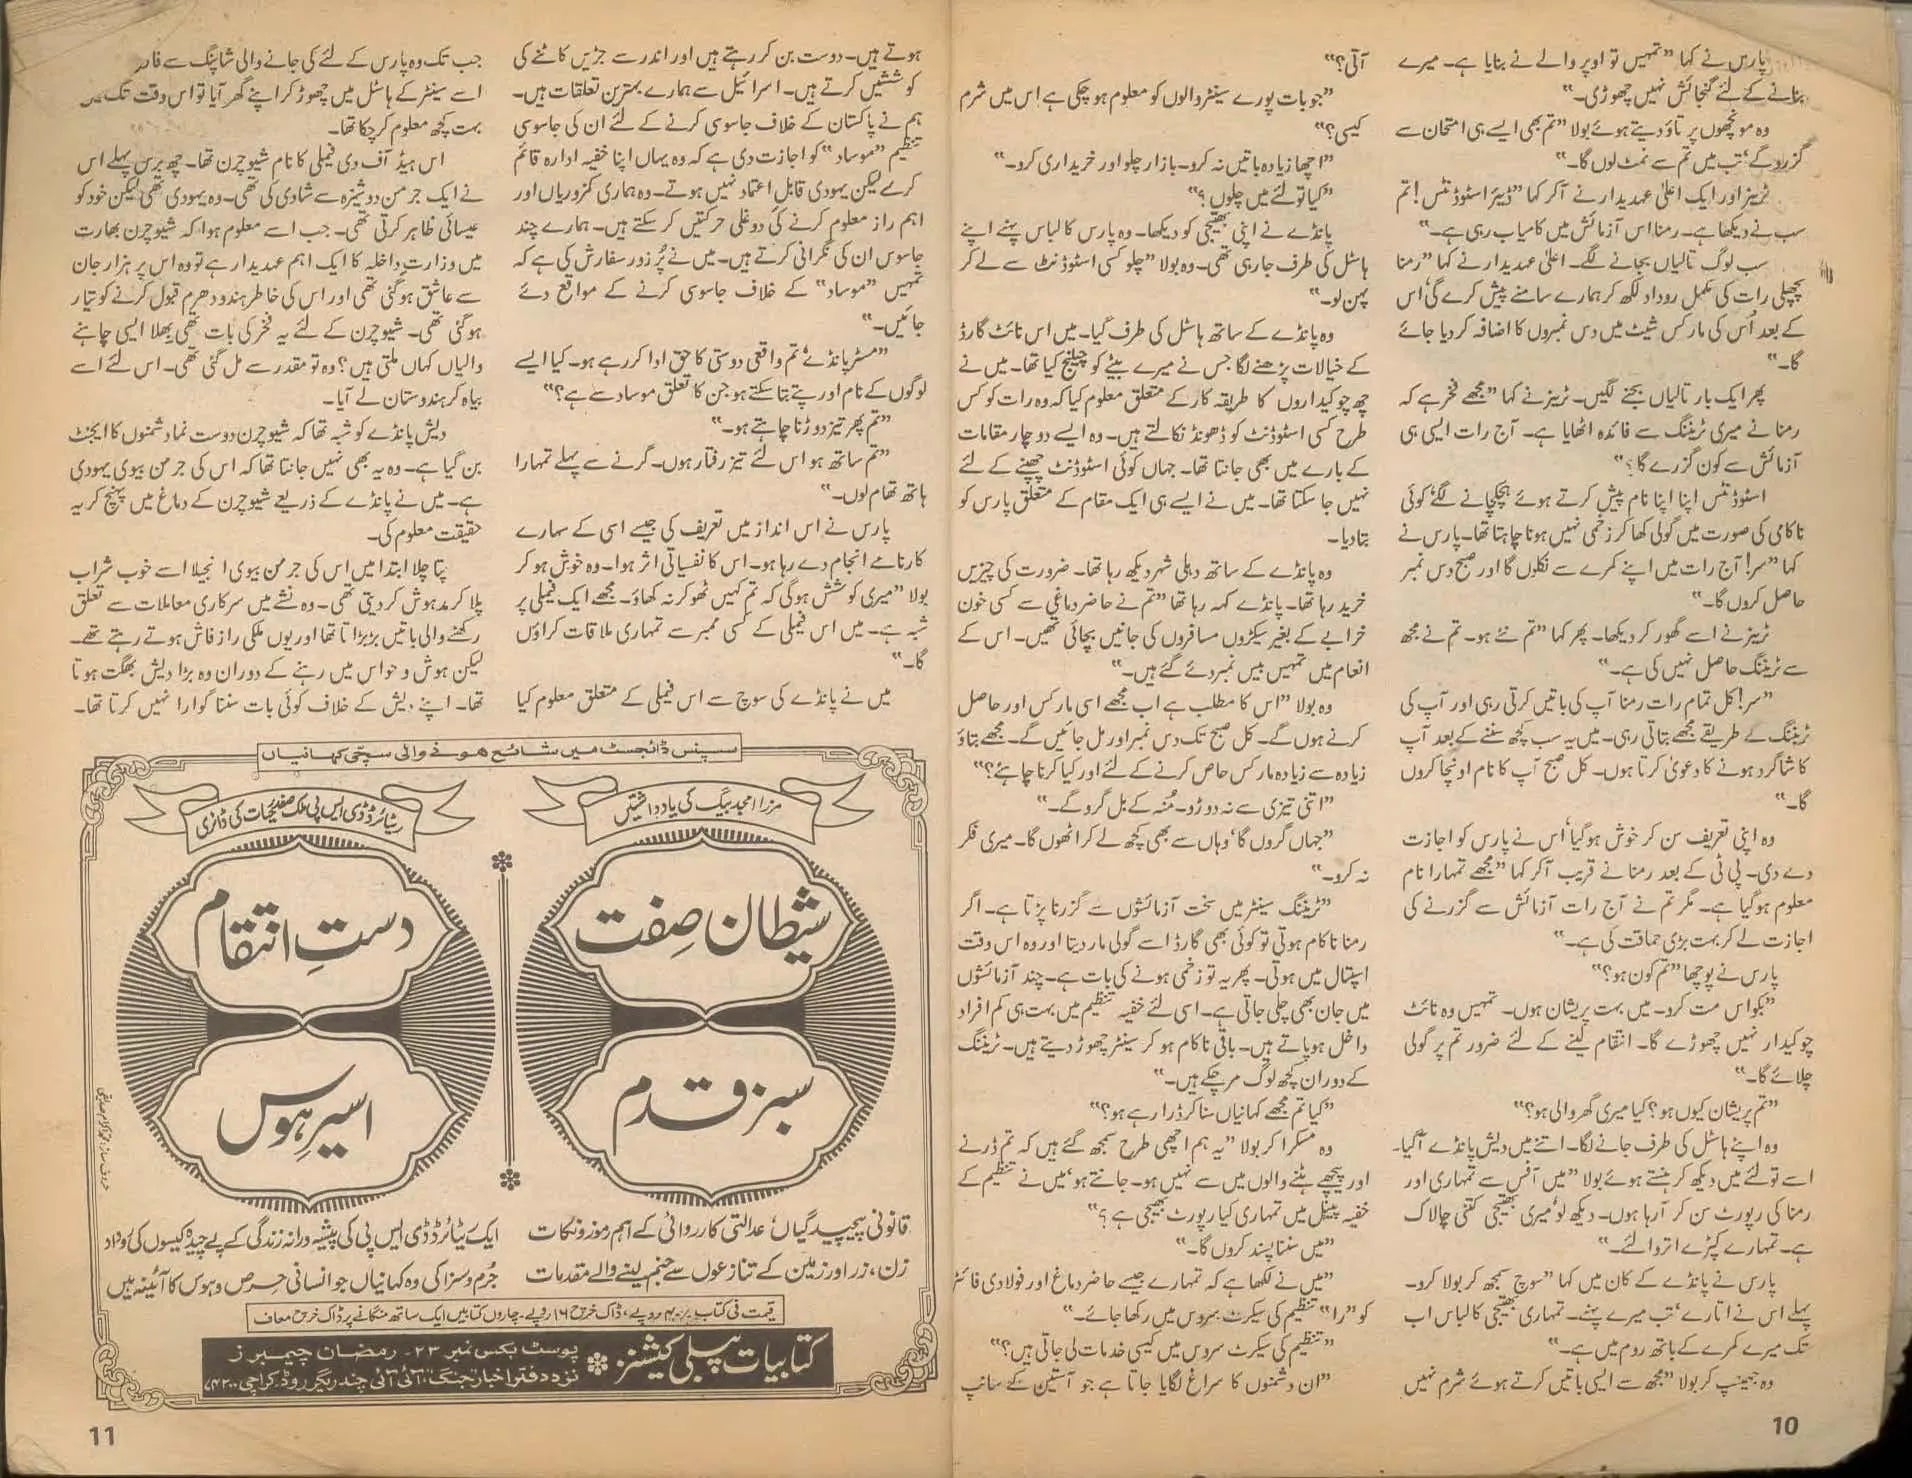 پارس نے کہا "تمہیں تو اوپر والے نے بنایا ہے۔ میرے
بنانے کے لئے گنجائش نہیں چھوڑی۔"
وہ مونچھوں پر تاؤ دیتے ہوئے بولا "تم بھی ایسے ہی امتحان سے
گزرو گے، تب میں تم سے نمٹ لوں گا۔"
ٹرینر اور ایک اعلیٰ عہدیدار نے آکر کہا "ڈیئر اسٹوڈنٹس! تم
سب نے دیکھا ہے۔ رمنا اس آزمائش میں کامیاب رہی ہے۔"
سب لوگ تالیاں بجانے لگے۔ اعلیٰ عہدیدار نے کہا "رمنا
پچھلی رات کی مکمل روداد لکھ کر ہمارے سامنے پیش کرے گی، اس
کے بعد اُس کی مارکس شیٹ میں دس نمبروں کا اضافہ کر دیا جائے
گا۔"
پھر ایک بار تالیاں بجنے لگیں۔ ٹرینر نے کہا "مجھے فخر ہے کہ
رمنا نے میری ٹریننگ سے فائدہ اٹھایا ہے۔ آج رات ایسی ہی
آزمائش سے کون گزرے گا؟"
اسٹوڈنٹس اپنا اپنا نام پیش کرتے ہوئے ہچکچانے لگے، کوئی
ناکامی کی صورت میں گولی کھا کر زخمی نہیں ہونا چاہتا تھا۔ پارس نے
کہا "سر! آج رات میں اپنے کمرے سے نکلوں گا اور صبح دس نمبر
حاصل کروں گا۔"
ٹرینر نے اسے گھور کر دیکھا۔ پھر کہا "تم نئے ہو۔ تم نے مجھ
سے ٹریننگ حاصل نہیں کی ہے۔"
"سر! کل تمام رات رمنا آپ کی باتیں کرتی رہی اور آپ کی
ٹریننگ کے طریقے مجھے بتاتی رہی۔ میں یہ سب کچھ سننے کے بعد آپ
کا شاگرد ہونے کا دعویٰ کرتا ہوں۔ کل صبح آپ کا نام اونچا کروں
گا۔"
وہ اپنی تعریف سن کر خوش ہو گیا، اس نے پارس کو اجازت
دے دی۔ پی ٹی کے بعد رمنا نے قریب آکر کہا "مجھے تمہارا نام
معلوم ہو گیا ہے۔ مگر تم نے آج رات آزمائش سے گزرنے کی
اجازت لے کر بہت بڑی حماقت کی ہے۔"
پارس نے پوچھا "تم کون ہو؟"
"بکواس مت کرو۔ میں بہت پریشان ہوں۔ تمہیں وہ نائٹ
چوکیدار نہیں چھوڑے گا۔ انتقام لینے کے لئے ضرور تم پر گولی
چلائے گا۔"
"تم پریشان کیوں ہو؟ کیا میری گھر والی ہو؟"
وہ اپنے ہاسٹل کی طرف جانے لگا۔ اتنے میں دیش پانڈے آگیا۔
اسے تولئے میں دیکھ کر ہنستے ہوئے بولا "میں آفس سے تمہاری اور
رمنا کی رپورٹ سن کر آرہا ہوں۔ دیکھ لو، میری بھتیجی کتنی چالاک
ہے۔ تمہارے کپڑے اتروا لئے۔"
پارس نے پانڈے کے کان میں کہا "سوچ سمجھ کر بولا کرو۔
پہلے اس نے اتارے، تب میرے پہنے۔ تمہاری بھتیجی کا لباس اب
تک میرے کمرے کے باتھ روم میں ہے۔"
وہ جھینپ کر بولا "مجھ سے ایسی باتیں کرتے ہوئے شرم نہیں
10
آتی؟"
"جو بات پورے سینٹر والوں کو معلوم ہو چکی ہے اس میں شرم
کیسی؟"
"اچھا زیادہ باتیں نہ کرو۔ بازار چلو اور خریداری کرو۔"
"کیا تولئے میں چلوں؟"
پانڈے نے اپنی بھتیجی کو دیکھا۔ وہ پارس کا لباس پہنے اپنے
ہاسٹل کی طرف جارہی تھی۔ وہ بولا "چلو کسی اسٹوڈنٹ سے لے کر
پہن لو۔"
وہ پانڈے کے ساتھ ہاسٹل کی طرف گیا۔ میں اس نائٹ گارڈ
کے خیالات پڑھنے لگا جس نے میرے بیٹے کو چیلنج کیا تھا۔ میں نے
چھ چوکیداروں کا طریقہ کار کے متعلق معلوم کیا کہ وہ رات کو کس
طرح کسی اسٹوڈنٹ کو ڈھونڈ نکالتے ہیں۔ وہ ایسے دو چار مقامات
کے بارے میں بھی جانتا تھا۔ جہاں کوئی اسٹوڈنٹ چھپنے کے لئے
نہیں جا سکتا تھا۔ میں نے ایسے ہی ایک مقام کے متعلق پارس کو
بتا دیا۔
وہ پانڈے کے ساتھ دہلی شہر دیکھ رہا تھا۔ ضرورت کی چیزیں
خرید رہا تھا۔ پانڈے کہہ رہا تھا "تم نے حاضر دماغی سے کسی خون
خرابے کے بغیر سیکڑوں مسافروں کی جانیں بچائی تھیں۔ اس کے
انعام میں تمہیں بیس نمبر دئے گئے ہیں۔"
وہ بولا "اس کا مطلب ہے اب مجھے اسی مارکس اور حاصل
کرنے ہوں گے۔ کل صبح تک دس نمبر اور مل جائیں گے۔ مجھے بتاؤ
زیادہ سے زیادہ مارکس حاصل کرنے کے لئے اور کیا کرنا چاہئے؟"
"اتنی تیزی سے نہ دوڑو۔ مُنہ کے بل گرو گے۔"
"جہاں گروں گا، وہاں سے بھی کچھ لے کر اٹھوں گا۔ میری فکر
نہ کرو۔"
"ٹریننگ سینٹر میں سخت آزمائشوں سے گزرنا پڑتا ہے۔ اگر
رمنا ناکام ہوتی تو کوئی بھی گارڈ اسے گولی مار دیتا اور وہ اس وقت
اسپتال میں ہوتی۔ پھر یہ تو زخمی ہونے کی بات ہے۔ چند آزمائشوں
میں جان بھی چلی جاتی ہے۔ اسی لئے خفیہ تنظیم میں بہت ہی کم افراد
داخل ہو پاتے ہیں۔ باقی ناکام ہو کر سینٹر چھوڑ دیتے ہیں۔ ٹریننگ
کے دوران کچھ لوگ مر چکے ہیں۔"
"کیا تم مجھے کہانیاں سنا کر ڈرا رہے ہو؟"
وہ مسکرا کر بولا "یہ ہم اچھی طرح سمجھ گئے ہیں کہ تم ڈرنے
اور پیچھے ہٹنے والوں میں سے نہیں ہو۔ جانتے ہو، میں نے تنظیم کے
خفیہ پینل میں تمہاری کیا رپورٹ بھیجی ہے؟"
"میں سننا پسند کروں گا۔"
"میں نے لکھا ہے کہ تمہارے جیسے حاضر دماغ اور فولادی فائٹر
کو "را" تنظیم کی سیکرٹ سروس میں رکھا جائے۔"
"تنظیم کی سیکرٹ سروس میں کیسی خدمات لی جاتی ہیں؟"
"ان دشمنوں کا سراغ لگایا جاتا ہے جو آستین کے سانپ
ہوتے ہیں۔ دوست بن کر رہتے ہیں اور اندر سے جڑیں کاٹنے کی
کوششیں کرتے ہیں۔ اسرائیل سے ہمارے بہترین تعلقات ہیں۔
ہم نے پاکستان کے خلاف جاسوسی کرنے کے لئے ان کی جاسوسی
تنظیم "موساد" کو اجازت دی ہے کہ وہ یہاں اپنا خفیہ ادارہ قائم
کرے لیکن یہودی قابلِ اعتماد نہیں ہوتے۔ وہ ہماری کمزوریاں اور
اہم راز معلوم کرنے کی دوغلی حرکتیں کر سکتے ہیں۔ ہمارے چند
جاسوس ان کی نگرانی کرتے ہیں۔ میں نے پُر زور سفارش کی ہے کہ
تمہیں "موساد" کے خلاف جاسوسی کرنے کے مواقع دئے
جائیں۔"
"مسٹر پانڈے! تم واقعی دوستی کا حق ادا کر رہے ہو۔ کیا ایسے
لوگوں کے نام اور پتے بتا سکتے ہو جن کا تعلق موساد سے ہے؟"
"تم پھر تیز دوڑنا چاہتے ہو۔"
"تم ساتھ ہو اس لئے تیز رفتار ہوں۔ گرنے سے پہلے تمہارا
ہاتھ تھام لوں۔"
پارس نے اس انداز میں تعریف کی جیسے اسی کے سہارے
کارنامے انجام دے رہا ہو۔ اس کا نفسیاتی اثر ہوا۔ وہ خوش ہو کر
بولا "میری کوشش ہوگی کہ تم کہیں ٹھوکر نہ کھاؤ۔ مجھے ایک فیملی پر
شبہ ہے۔ میں اس فیملی کے کسی ممبر سے تمہاری ملاقات کراؤں
گا۔"
میں نے پانڈے کی سوچ سے اس فیملی کے متعلق معلوم کیا
جب تک وہ پارس کے لئے کی جانے والی شاپنگ سے
اسے سینٹر کے ہاسٹل میں چھوڑ کر اپنے گھر آیا تو اس وقت تک
بہت کچھ معلوم کر چکا تھا۔
اس ہیڈ آف دی فیملی کا نام شیوچرن تھا۔ چھ برس پہلے اس
نے ایک جرمن دوشیزہ سے شادی کی تھی۔ وہ یہودی تھی لیکن خود کو
عیسائی ظاہر کرتی تھی۔ جب اسے معلوم ہوا کہ شیوچرن بھارت
میں وزارتِ داخلہ کا ایک اہم عہدیدار ہے تو وہ اس پر ہزار جان
سے عاشق ہو گئی تھی اور اس کی خاطر ہندو دھرم قبول کرنے کو تیار
ہو گئی تھی۔ شیوچرن کے لئے یہ فخر کی بات تھی، بھلا ایسی چاہنے
والیاں کہاں ملتی ہیں؟ وہ تو مقدر سے مل گئی تھی۔ اس لئے اسے
بیاہ کر ہندوستان لے آیا۔
دیش پانڈے کو شبہ تھا کہ شیوچرن دوست نما دشمنوں کا ایجنٹ
بن گیا ہے۔ وہ یہ بھی نہیں جانتا تھا کہ اس کی جرمن بیوی یہودی
ہے۔ میں نے پانڈے کے ذریعے شیوچرن کے دماغ میں پہنچ کر یہ
حقیقت معلوم کی۔
پتا چلا ابتدا میں اس کی جرمن بیوی انجیلا اسے خوب شراب
پلا کر مدہوش کر دیتی تھی۔ وہ نشے میں سرکاری معاملات سے تعلق
رکھنے والی باتیں بڑبڑاتا تھا اور یوں ملکی راز فاش ہوتے رہتے تھے۔
لیکن ہوش و حواس میں رہنے کے دوران وہ بڑا دیش بھگت ہوتا
تھا۔ اپنے دیش کے خلاف کوئی بات سننا گوارا نہیں کرتا تھا۔
سسپنس ڈائجسٹ میں شائع ہونے والی سچی کہانیاں
مرزا امجد بیگ کی یادداشتیں
شیطان صِفت
سبز قدم
قانونی پیچیدگیاں، عدالتی کارروائی کے اہم رموز و نکات
زن، زر اور زمین کے تنازعوں سے جنم لینے والے مقدمات
ریٹائرڈ ڈی ایس پی ملک صفدر حیات کی ڈائری
دستِ انتقام
اسیرِ ہوس
ایک ریٹائرڈ ڈی ایس پی کی پیشہ ورانہ زندگی کے پیچیدہ کیسوں کی روداد
جُرم و سزا کی وہ کہانیاں جو انسانی حرص و ہوس کا آئینہ ہیں
قیمت فی کتاب ۴۰ روپے، ڈاک خرچ ۱۶ روپے۔ چاروں کتابیں ایک ساتھ منگانے پر ڈاک خرچ معاف
کتابیات پبلی کیشنز
پوسٹ بکس نمبر ۲۳۔ رمضان چیمبرز
نزد دفتر اخبار "جنگ" آئی آئی چندریگر روڈ۔ کراچی ۷۴۲۰۰
11